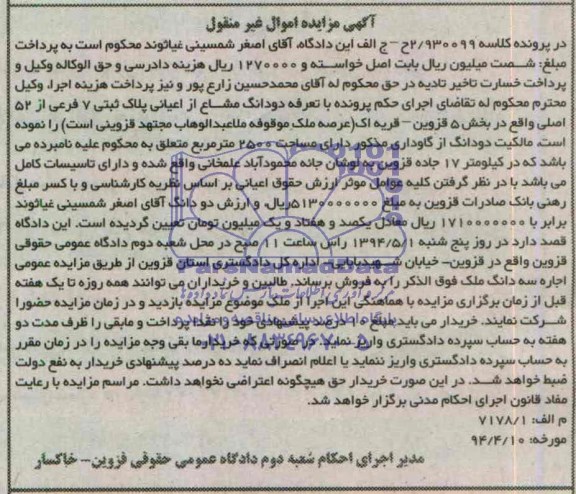 آگهی مزایده اموال غیر منقول
در پرونده کلاسه ۲/۹۳۰۰۹۹ح -ج الف این دادگاه، آقای اصغر شمسینی غیاثوند محکوم است به پرداخت
مبلغ: شصت میلیون ریال بابت اصل خواسته و ۱۲۷۰۰۰۰ ریال هزینه دادرسی و حق الوکاله وکیل و
پرداخت خسارت تاخیر تادیه در حق محکوم له آقای محمدحسین زارع پور و نیز پرداخت هزینه اجرا، وکیل
محترم محکوم له تقاضای اجرای حکم پرونده با تعرفه دودانگ مشاع از اعیانی پلاک ثبتی ۷ فرعی از ۵۲
اصلی واقع در بخش ۵ قزوین- قریه اک(عرصه ملک موقوفه ملاعبدالوهاب مجتهد قزوینی است) را نموده
است. مالکیت دودانگ از گاوداری مذکور دارای مساحت ۲۵۰۰ مترمربع متعلق به محکوم علیه نامبرده می
باشد که در کیلومتر ۱۷ جاده قزوین به لوشان جانه محمودآباد علمخانی واقع شده و دارای تاسیسات کامل
می باشد با در نظر گرفتن کلیه عوامل موثر ارزش حقوق اعیانی بر اساس نظریه کارشناسی و با کسر مبلغ
رهنی بانک صادرات قزوین به مبلغ ۵۱۳۰۰۰۰۰۰۰ریال، و ارزش دو دانگ آقای اصغر شمسینی غیاثوند
برابر با ۱۷۱۰۰۰۰۰۰۰ ریال معادل یکصد و هفتاد و یک میلیون تومان تعیین گردیده است. این دادگاه
قصد دارد در روز پنج شنبه ۱۳۹۴/۵/۱ راس ساعت ۱۱ صبح در محل شعبه دوم دادگاه عمومی حقوقی
قزوین واقع در قزوین- خیابان شهیدبابایی- اداره کل دادگستری استان قزوین از طریق مزایده عمومی
اجاره سه دانگ ملک فوق الذکر را به فروش برساند. طالبین و خریداران می توانند همه روزه تا یک هفته
قبل از زمان برگزاری مزایده با هماهنگی این اجرا از ملک موضوع مزایده بازدید و در زمان مزایده حضورا
شرکت نمایند. خریدار می باید مبلغ ۱۰ درصد پیشنهادی خود را نقدا پرداخت و مابقی را ظرف مدت دو
هفته به حساب سپرده دادگستری واریز نماید در صورتی که خریدار ما بقی وجه مزایده را در زمان مقرر
به حساب سپرده دادگستری واریز ننماید یا اعلام انصراف نماید ده درصد پیشنهادی خریدار به نفع دولت
ضبط خواهد شد. در این صورت خریدار حق هیچگونه اعتراضی نخواهد داشت. مراسم مزایده با رعایت
مفاد قانون اجرای احکام مدنی برگزار خواهد شد.
م الف: ۷۱۷۸/۱
مورخه: ۹۴/۴/۱۰
مدیر اجرای احکام شعبه دوم دادگاه عمومی حقوقی قزوین- خاکسار